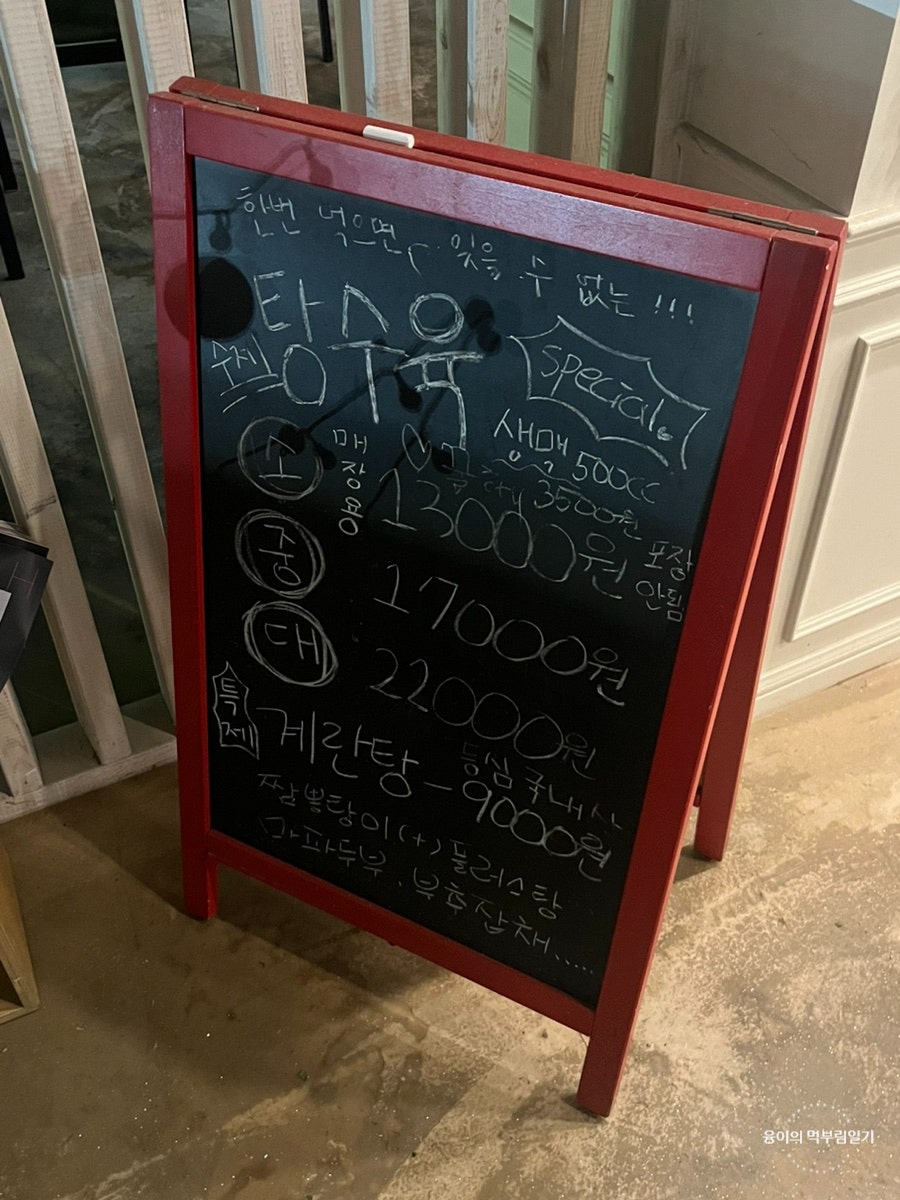 한번 먹으면 잊을 수 없는 !!!
수제 탕수육
special
생맥 500cc
3500원
소 매장용 13000원 포장 안됨
중 17000원
대 22000원
등심 국내산
특제 계란탕 - 9000원
짬뽕탕이(+)플러스탕
마파두부 . 부추잡채.....
융이의 먹부림일기